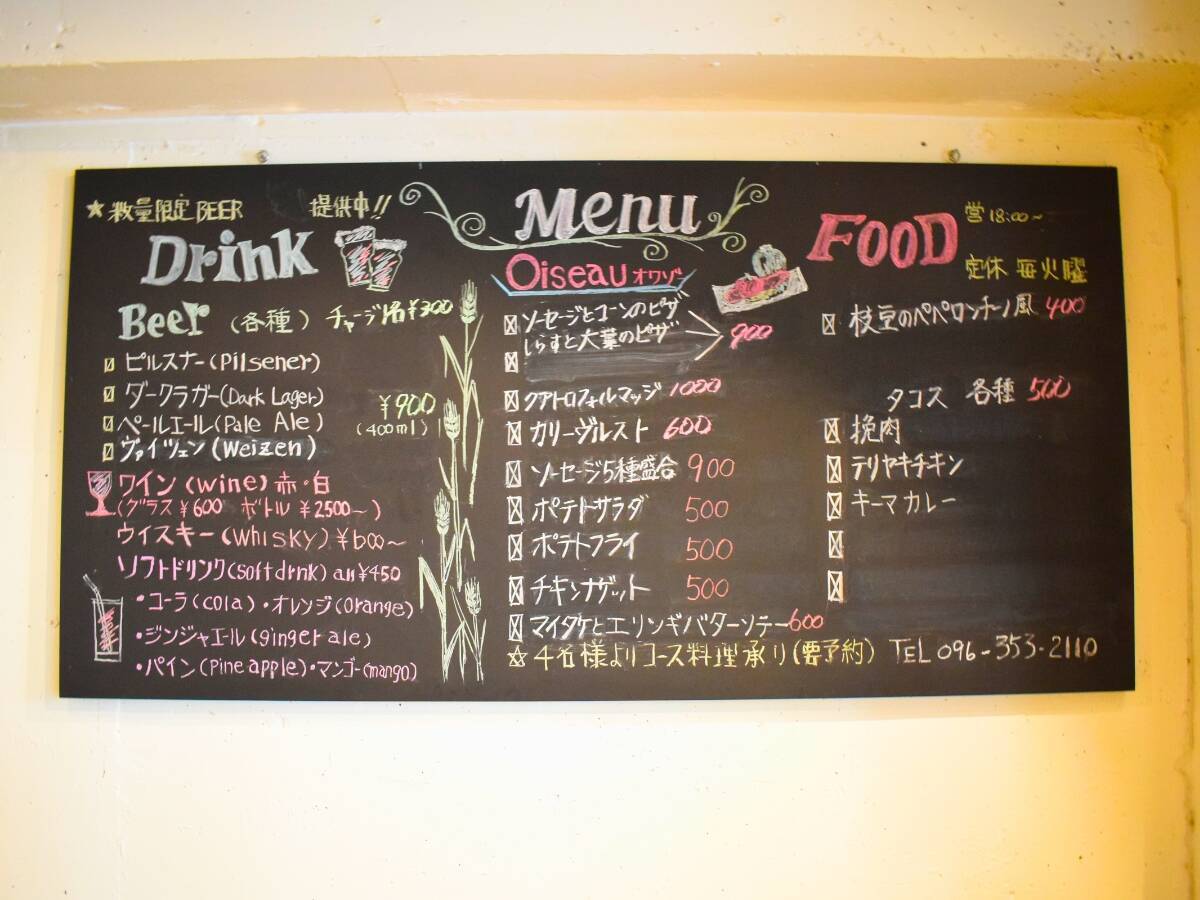 ★数量限定BEER 提供中!!
Drink
Beer (各種) チャージ1名¥300
ピルスナー(Pilsener)
ダークラガー(Dark Lager)
ペールエール(Pale Ale)
ヴァイツェン(Weizen)
¥900
(400ml)
ワイン(wine)赤・白
(グラス¥600 ボトル¥2500~)
ウイスキー(Whisky)¥600~
ソフトドリンク(soft drnk) all ¥450
・コーラ(cola)・オレンジ(orange)
・ジンジャエール(ginger ale)
・パイン(Pine apple)・マンゴー(mango)
Menu
Oiseau オワゾー
ソーセージとコーンのピザ
しらすと大葉のピザ
900
クアトロフォルマッジ 1000
カリーヴルスト 600
ソーセージ5種盛合 900
ポテトサラダ 500
ポテトフライ 500
チキンナゲット 500
マイタケとエリンギバターソテー600
FOOD
営18:00~
定休 毎火曜
枝豆のペペロンチーノ風 400
タコス 各種 500
挽肉
テリヤキチキン
キーマカレー
☆4名様よりコース料理承り(要予約) TEL 096-353-2110